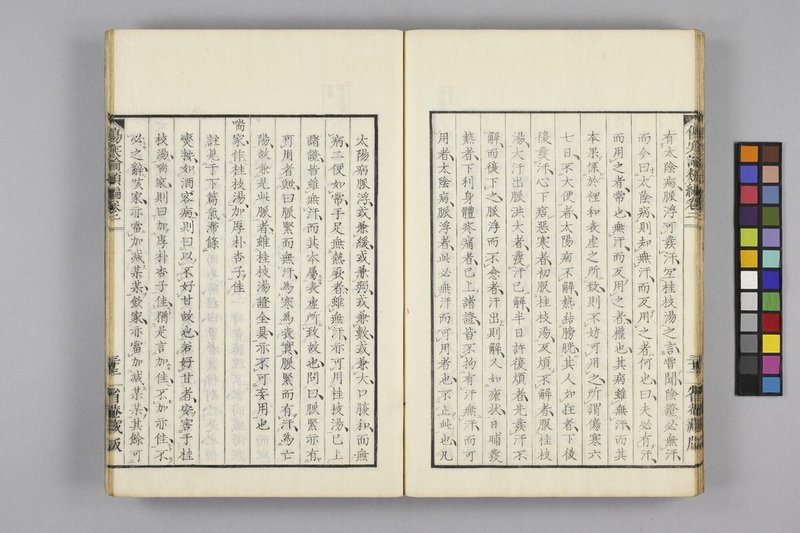 有太陰病脈浮可發汗宜桂枝湯之言嘗聞陰證必無汗
而今曰太陰病則知無汗而反用之者何也曰夫必有汗
而用之者常也無汗而反用之者權也其病雖無汗而其
本果係於裡和表虛之所致則不妨可用之所謂傷寒六
七日不大便者太陽病不解熱結膀胱其人如狂者下後
復發汗心下痞惡寒者初服桂枝湯反煩不解者服桂枝
湯大汗出脈洪大者發汗已解半日許復煩者先發汗不
解而後下之脈浮而不愈者汗出則解又如瘧狀日晡發
熱者下利身體疼痛者已上諸證皆不拘有汗無汗而可
用者太陰病脈浮者此必無汗而可用者也不止此也凡
太陽病脈浮或兼緩或兼弱或兼數或兼大口腹和而無
病二便如常手足無熱厥者雖無汗亦可用桂枝湯已上
諸證皆雖無汗而其本屬表虛所致故也問曰脈緊亦有
可用者無曰脈緊而無汗為寒為表實脈緊而有汗為亡
陽故兼見此脈者雖桂枝湯證全具亦不可妄用也
喘家作桂枝湯加厚朴杏子佳
註見于下篇氣滯條
奭按如酒客病則曰以不好甘故也若好甘者安害于桂
枝湯喘家則曰加厚朴杏子佳猶是言加佳不加亦佳不
必之辭咳家亦當加減某某飲家亦當加減某某其餘可
省菴藏版
省菴藏版